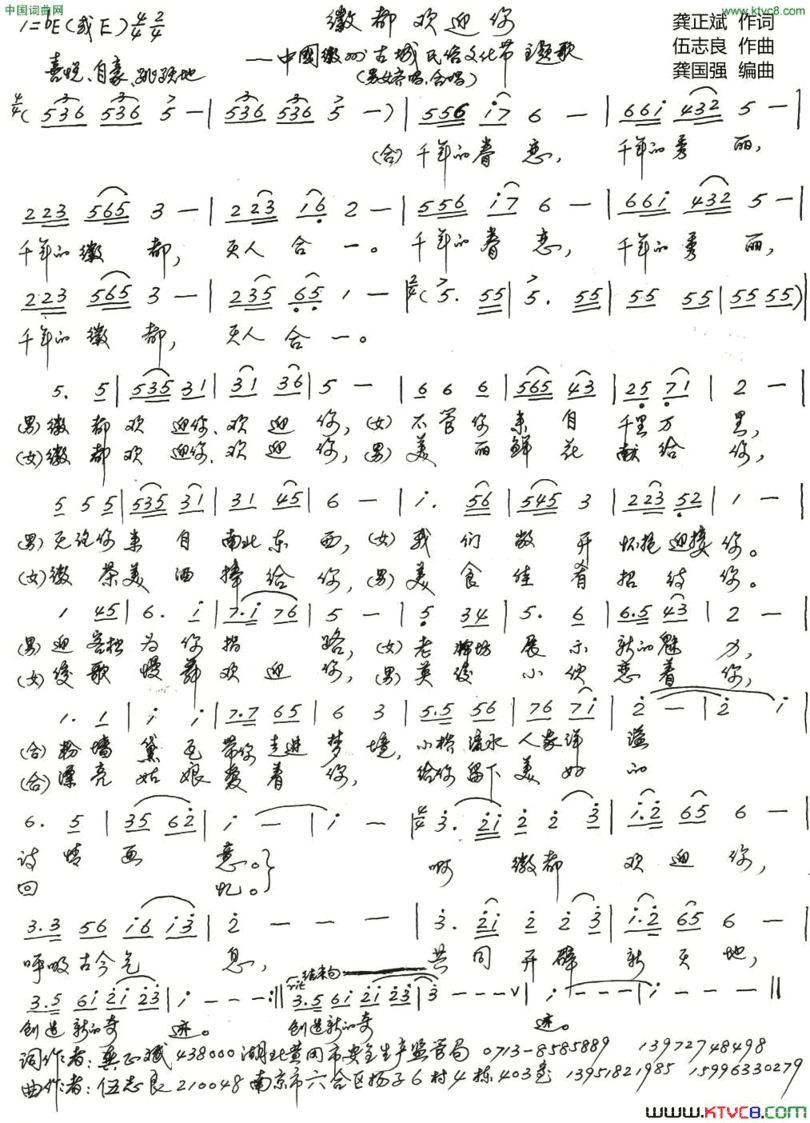 中国词曲网
www.ktvc8.com
1=bE(或E) 4/4 2/4
徽都欢迎你
龚正斌 作词
伍志良 作曲
龚国强 编曲
喜悦、自豪、跳跃地
——中國徽州古城民俗文化节主题歌
(男女齐唱、合唱)
4/4 (536 536 5 — | 536 536 5 —) | 556 i7 6 — | 66i 432 5 — |
(合)千年的眷恋, 千年的秀丽,
223 565 3 — | 223 i6 2 — | 556 i7 6 — | 66i 432 5 — |
千年的徽都, 天人合一。千年的眷恋, 千年的秀丽,
223 565 3 — | 235 65 1 — | 2/4 (5. 55 | 5. 55 | 55 55 | 55 55) |
千年的徽都, 天人合一。
5. 5 | 535 31 | 31 36 | 5 — | 6 6 6 | 565 43 | 25 71 | 2 — |
(男)徽都欢迎你、欢迎你, (女)不管你来自千里万里,
(女)徽都欢迎你、欢迎你, (男)美丽鲜花献给你,
5 5 5 | 535 31 | 31 45 | 6 — | i. 56 | 545 3 | 223 52 | 1 — |
(男)无论你来自南北东西, (女)我们敞开怀抱迎接你。
(女)徽茶美酒捧给你, (男)美食佳肴招待你。
1 45 | 6. i | 7.i 76 | 5 — | 5 34 | 5. 6 | 6.5 43 | 2 — |
(男)迎客松为你指路, (女)老牌坊展示新的魅力,
(女)缓歌慢舞欢迎你, (男)英俊小伙恋着你,
1. 1 | i i | 7.7 65 | 6 3 | 5.5 56 | 76 7i | 2 — | 2 i |
(合)粉墙黛瓦带你走进梦境, 小桥流水人家洋溢
(合)漂亮姑娘爱着你, 给你留下美好的
6. 5 | 35 62 | i — | i — | 4/4 3. 2i 2 2 3 | i.2 65 6 — |
诗情画意。 啊 徽都欢迎你,
回忆。
3.3 56 i6 i3 | 2 — — — | 3. 2i 2 2 3 | i.2 65 6 — |
呼吸古今气息, 共同开辟新天地,
rit 结束句
3.5 6i 2i 23 | i — — — :‖ 3.5 6i 2i 23 | 3 — — — v | i — — — | i — — — ‖
创造新的奇迹。 创造新的奇迹。
词作者:龚正斌 438000 湖北黄冈市安全生产监管局 0713-8585889 13972748498
曲作者:伍志良 210048 南京市六合区扬子6村4栋403室 13951821985 15996330279
www.KTVC8.com